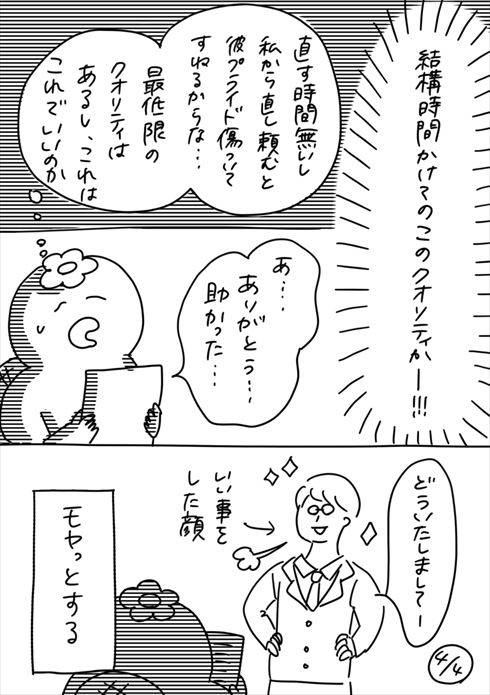 結構時間かけてのこのクオリティかー!!!
直す時間無いし
私から直し頼むと
彼プライド傷ついて
すねるからな…
最低限の
クオリティは
あるし、これは
これでいいのか
あ…
ありがとう…
助かった…
どういたしましてー
いい事を
した顔
モヤっとする
4/4